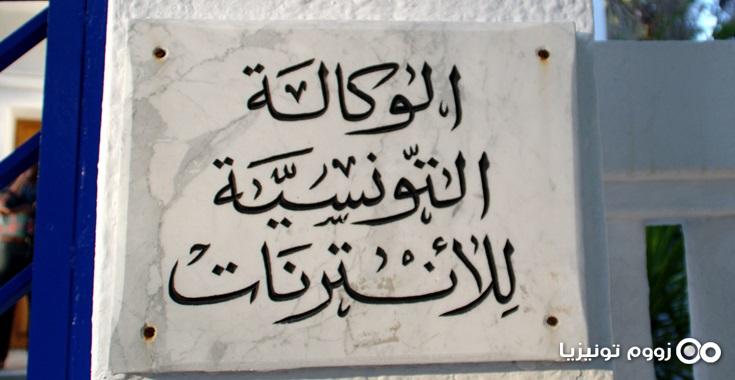 الوكالة
التّونسيّة
للأنترنات
زووم تونيزيا